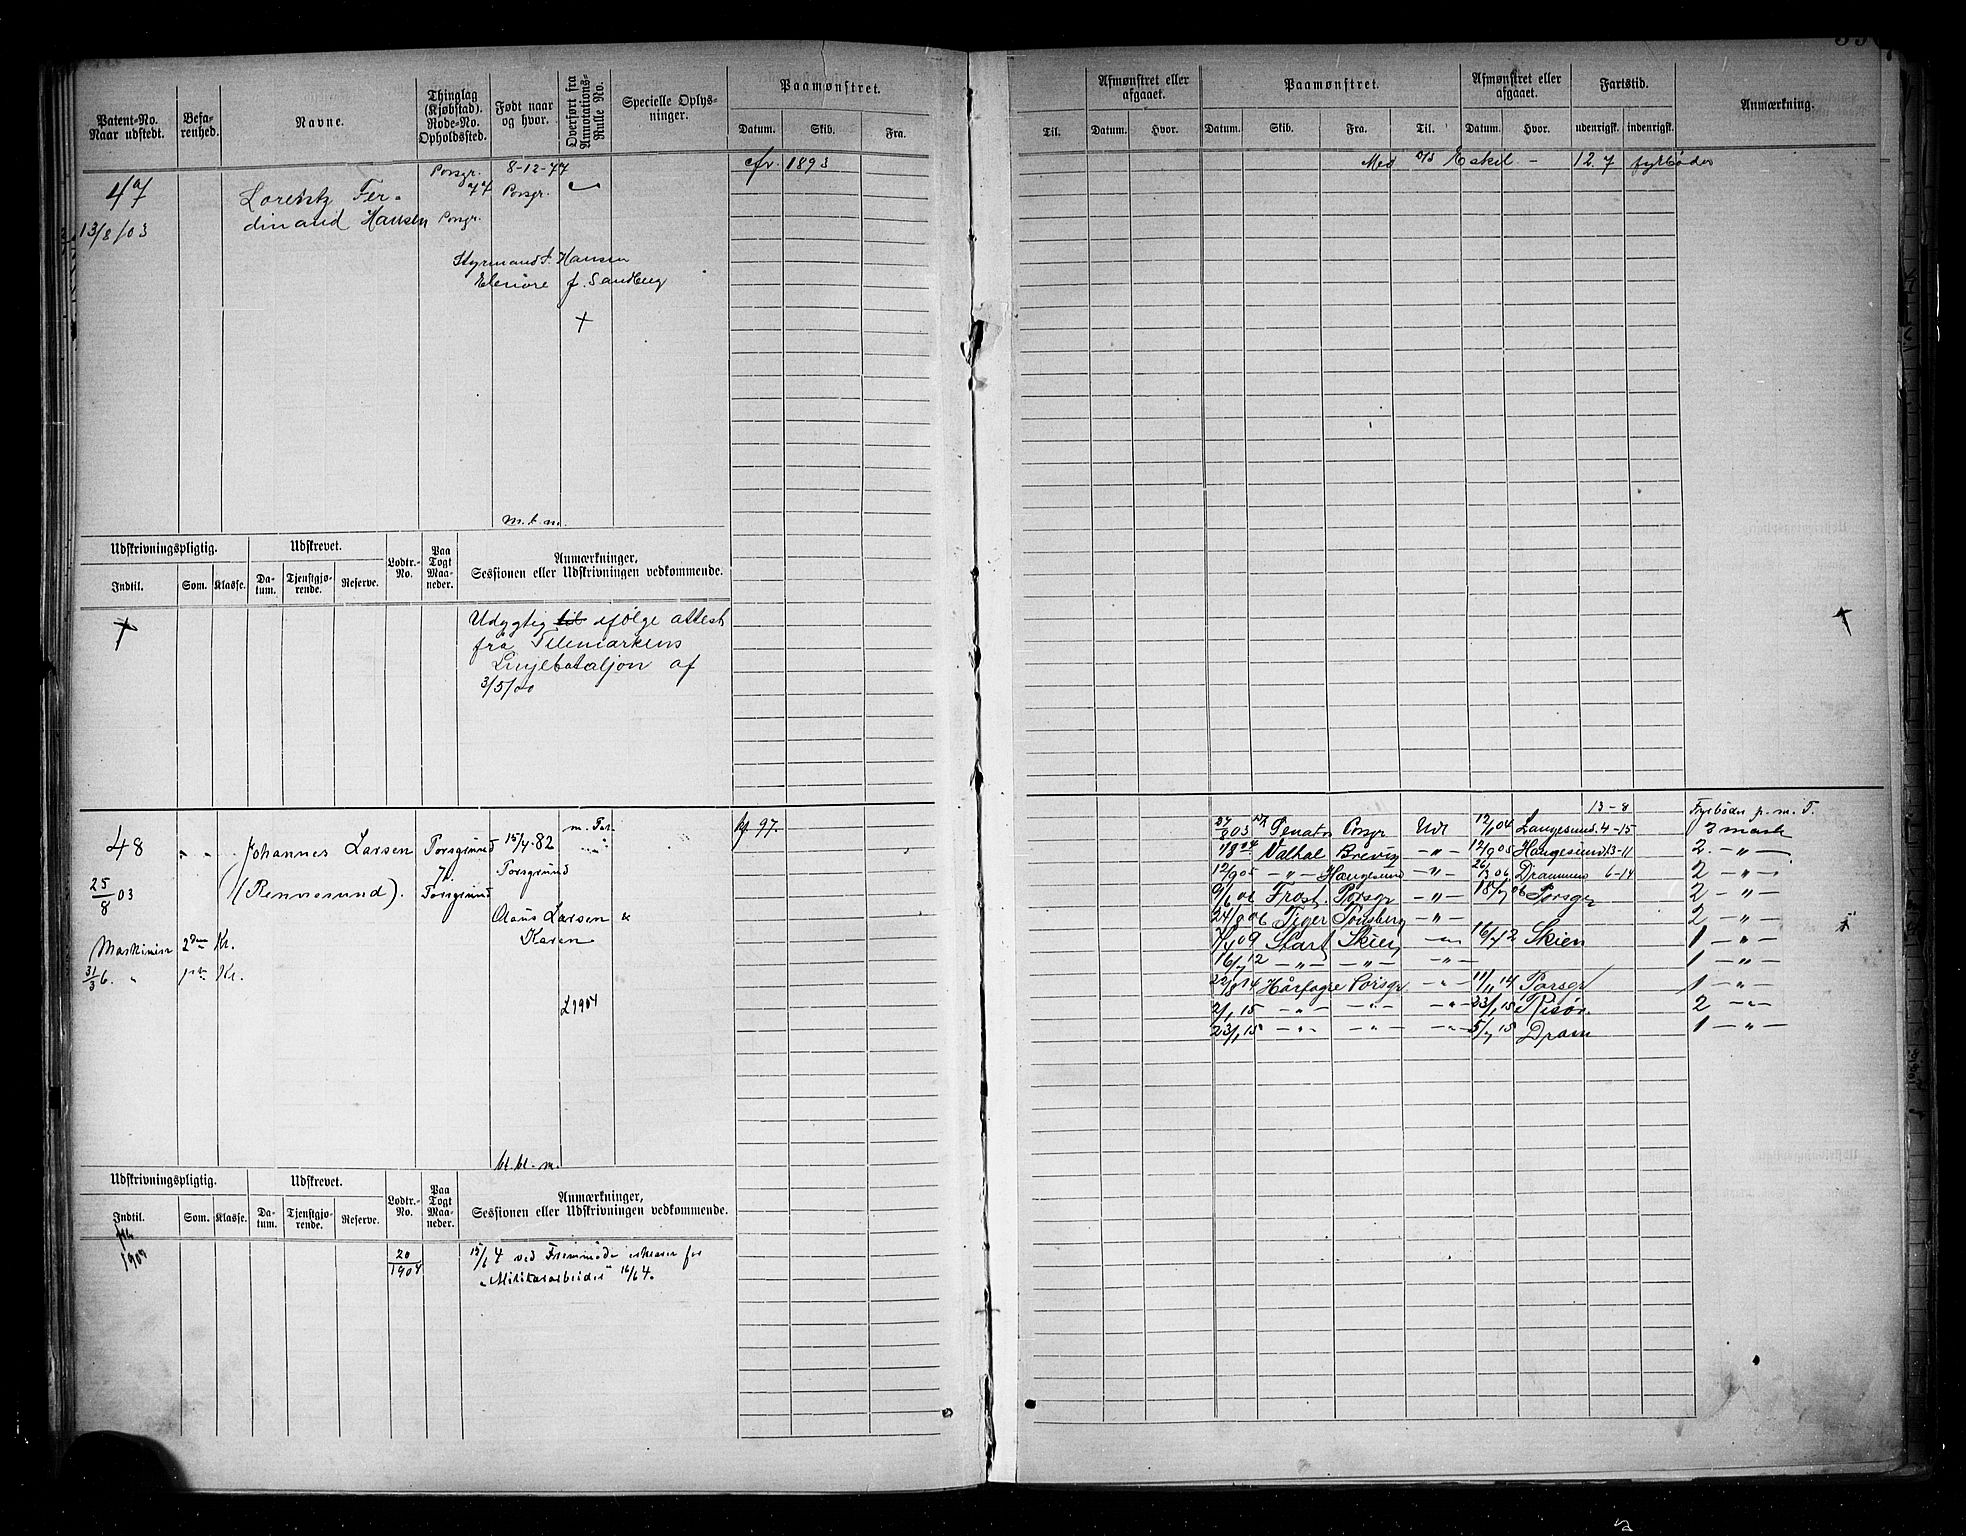 Patent-No. Naar udstedt.
Befa-renhed.
Navne.
Thinglag (Kjøbstad). Rode-No. Opholdssted.
Født naar og hvor.
Overført fra Annotations-Rulle No.
Specielle Oplys-ninger.
Paamønstret.
Datum. Skib. Fra.
Til.
Afmønstret eller afgaaet.
Datum. Hvor.
Paamønstret.
Datum. Skib. Fra. Til.
Afmønstret eller afgaaet.
Datum. Hvor.
Fartstid.
udenrigsk. indenrigsk.
Anmærkning.
Porsgr. 8-12-77 cfr. 1893
Med D/S Eskil - 12 7 fyrbøder
47 Lorentz Fer- 77 Porsgr.
13/8/03 dinand Hansen Porsgr.
Styrmand F. Hansen
Elenore f. Sandberg
+
m. k. m.
Udskrivningspligtig. Udskrevet. Lodtr.-No. Paa Togt Maa-neder. Anmærkninger, Sessionen eller Udskrivningen vedkommende.
Indtil. Som. Klasse. Da-tum. Tjenstgjø-rende. Reserve.
+ Udygtig til ifølge attest
fra Telemarkens
Linjebataljon af
3/5/00
13-8 Fyrbøder p. m. T.
48 " " Johannes Larsen Porsgrund 15/4.82 kf. 97.
27/8 03 Senator Porsgr Udl 12/1 04 Langesund. 4-15 3 mask
1/8 04 Valhal Brevig - " - 12/9 05 Haugesund 13-11 2. - " -
25/8 03 (Rennesund). Porsgrund Porsgrund
12/9 05 - " - Haugesund - " - 26/3 06 Drammen 6-14 2 - " -
9/6 06 Frost. Porsgr - " - 18/7 06 Porsgr 2 - " -
Olaus Larsen &
24/8 06 Tiger Tønsberg - " - 2 - " -
Maskinist 2den Kl. Karen
7/4 09 Start Skien - " - 16/7 12 Skien 1 - " -
16/7 12 - " - - " - - " - 1 - " -
31/3 6. " 1ste Kl.
22/8 14 Hårfagre Porsgr. - " - 11/11 14 Porsgr 1 - " -
L 1904
2/1 15 - " - - " - - " - 23/1 15 Risør. 2 - " -
23/1 15 - " - - " - - " - 5/7 15 Dram 1 - " -
bl. bl. m.
Udskrivningspligtig. Udskrevet. Lodtr.-No. Paa Togt Maa-neder. Anmærkninger, Sessionen eller Udskrivningen vedkommende.
Indtil. Som. Klasse. Da-tum. Tjenstgjø-rende. Reserve.
1904 20/1904 15/6 4 ved Fremmøde for
"Militærarbeider" 16/6 4.